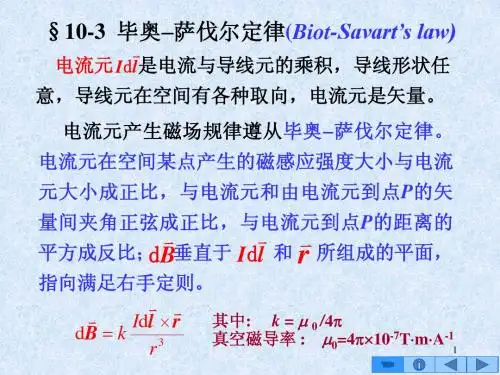 §10-3 毕奥–萨伐尔定律(Biot-Savart's law)
电流元Idl⃗是电流与导线元的乘积，导线形状任
意，导线元在空间有各种取向，电流元是矢量。
电流元产生磁场规律遵从毕奥–萨伐尔定律。
电流元在空间某点产生的磁感应强度大小与电流
元大小成正比，与电流元和由电流元到点P的矢
量间夹角正弦成正比，与电流元到点P的距离的
平方成反比；dB⃗垂直于 Idl⃗ 和 r⃗ 所组成的平面，
指向满足右手定则。
dB⃗ = k Idl⃗ × r⃗ / r³
其中: k = μ₀/4π
真空磁导率： μ₀=4π×10⁻⁷T·m·A⁻¹
1